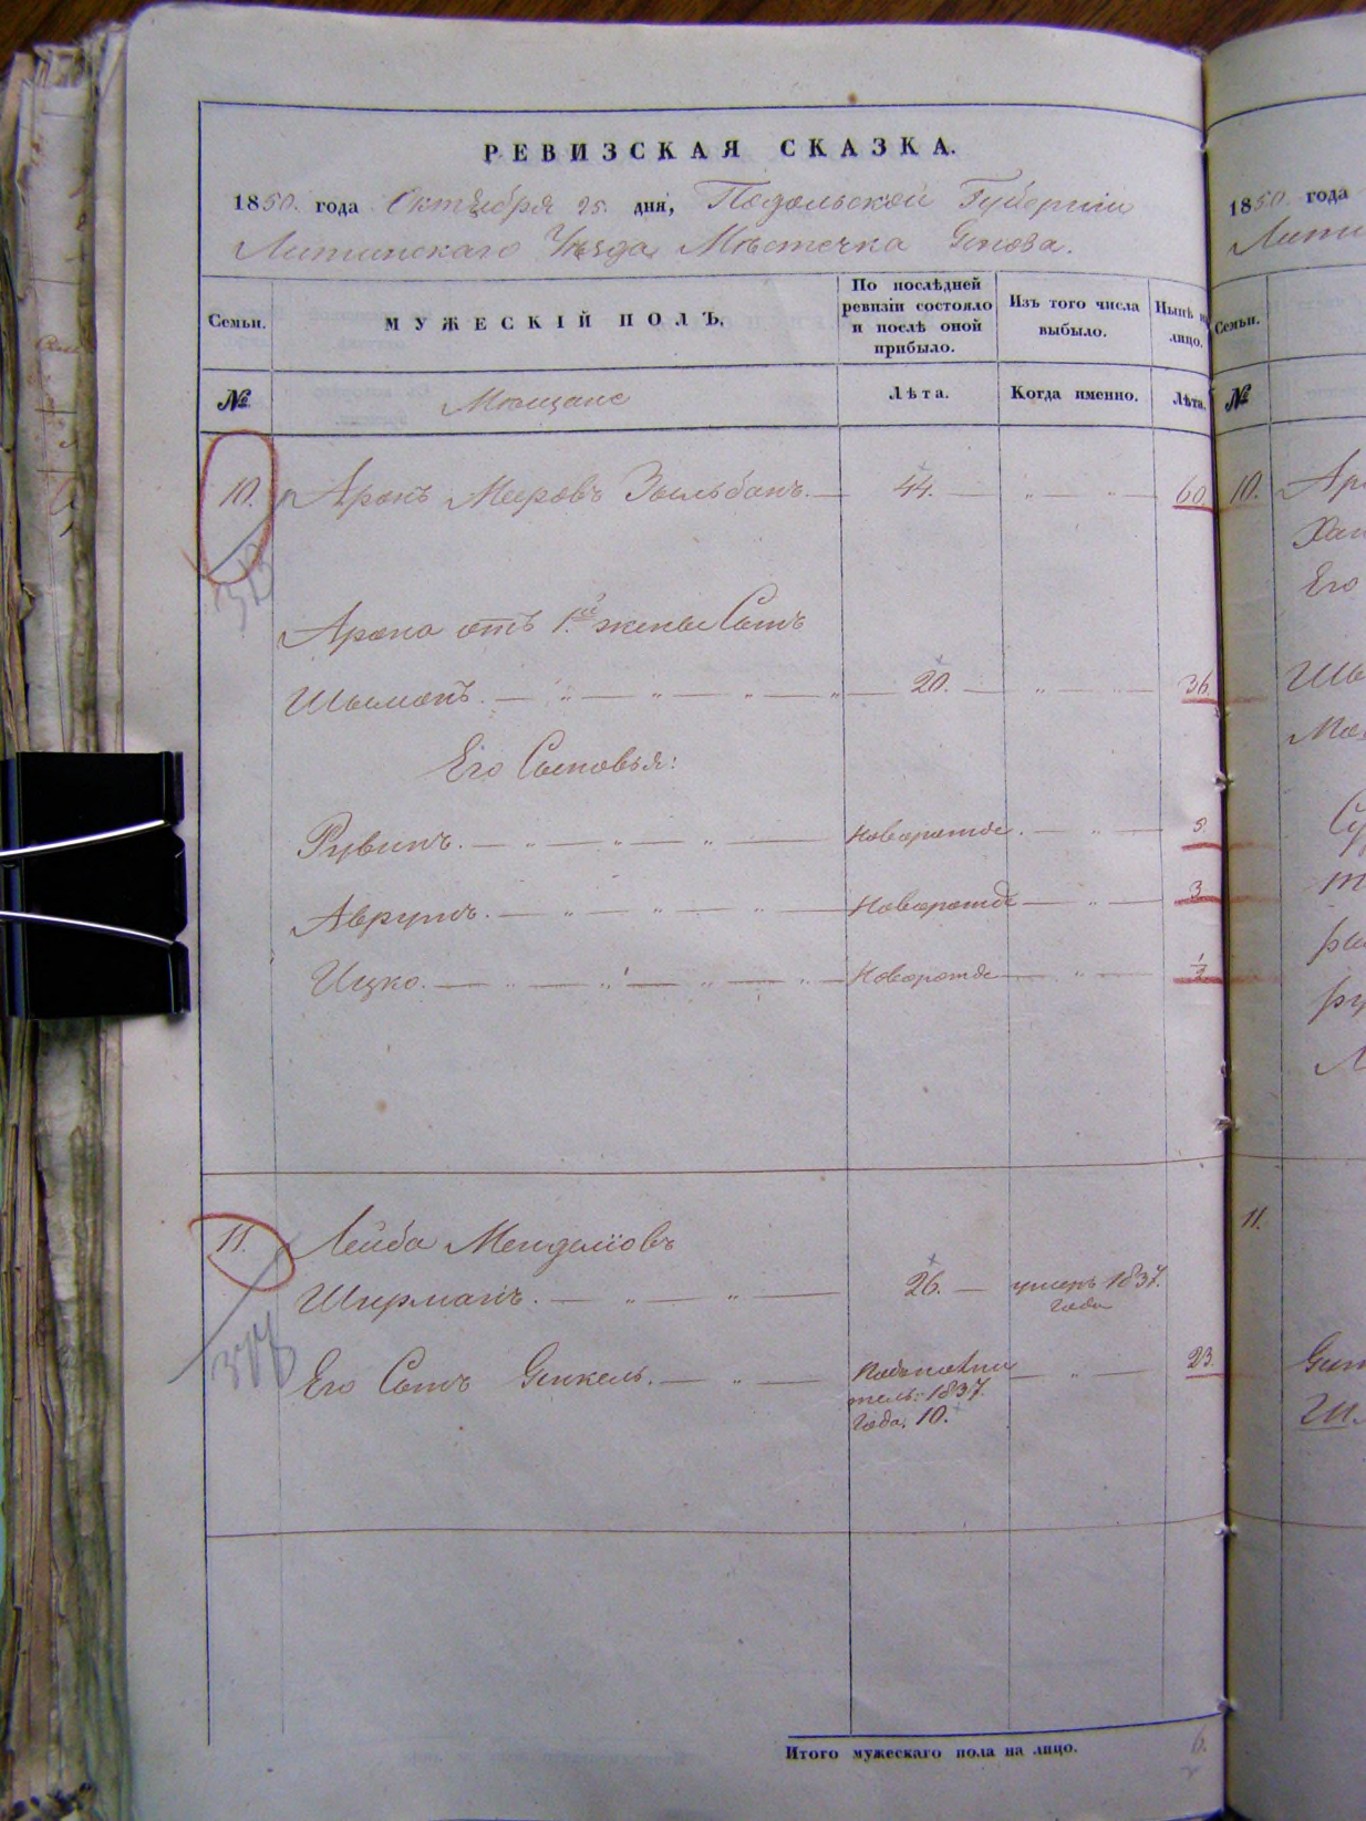 РЕВИЗСКАЯ СКАЗКА.
1850. года Октября 25. дня, Подольской Губерніи
Литинскаго Уѣзда Мѣстечка
Семьи.
МУЖЕСКІЙ ПОЛЪ.
По послѣдней
ревизіи состояло
и послѣ оной
прибыло.
Изъ того числа
выбыло.
Нынѣ на
лицо.
№
Мѣщане
Лѣта.
Когда именно.
Лѣта.
10. Аронъ Мееровъ Зильбанъ. 44. 60
Арона отъ 1ой жены Сынъ
Шымонъ. 20. 36.
Его Сыновья:
Рувинъ. Новорожде. 5.
Аврумъ. Новорожде 3
Ицко. Новорожде ½
11. Лейба Менделіовъ
Ширманъ. 26. умеръ 1837.
года
Его Сынъ Генкель. 23.
1837.
года. 10.
Итого мужескаго пола на лицо. 6.
1850 года
Семьи.
№
10.
Его
11.